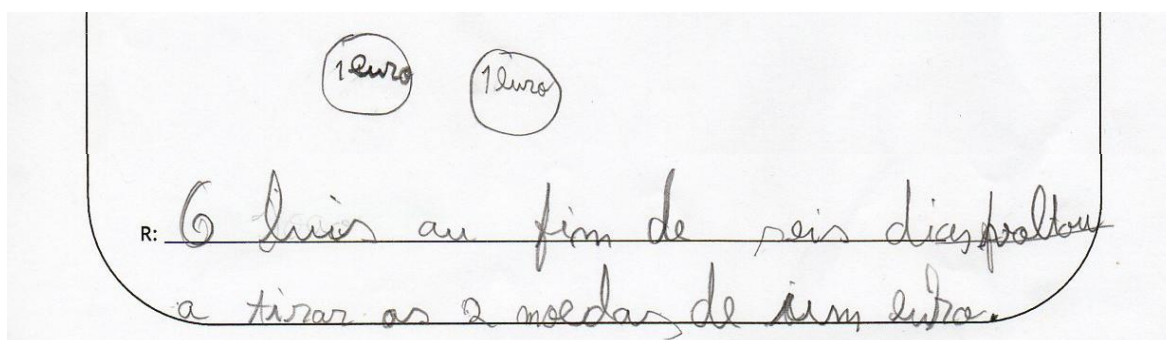 1 euro 1 euro
R: O luís au fim de seis dias voltou
a tirar as 2 moedas de um euro.